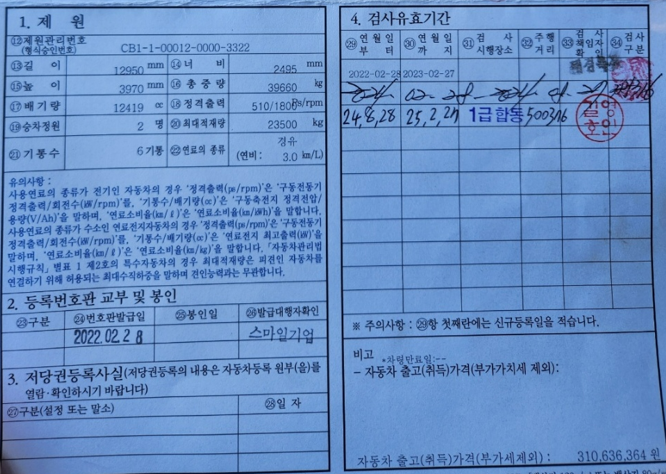 1. 제 원
⑫제원관리번호
(형식승인번호)
CB1-1-00012-0000-3322
⑬길 이 12950 mm ⑭너 비 2495 mm
⑮높 이 3970 mm ⑯총 중 량 39660 kg
⑰배 기 량 12419 cc ⑱정격출력 510/1800 Ps/rpm
⑲승차정원 2 명 ⑳최대적재량 23500 kg
㉑기 통 수 6 기통 ㉒연료의 종류 경유
(연비: 3.0 km/L)
유의사항 :
사용연료의 종류가 전기인 자동차의 경우 '정격출력(ps/rpm)'은 '구동전동기
정격출력/회전수(kW/rpm)'를, '기통수/배기량(cc)'은 '구동축전지 정격전압/
용량(V/Ah)'을 말하며, '연료소비율(km/ℓ)'은 '연료소비율(km/kWh)'을 말합니다.
사용연료의 종류가 수소인 연료전지자동차의 경우 '정격출력(ps/rpm)'은 '구동전동기
정격출력/회전수(kW/rpm)'를, '기통수/배기량(cc)'은 '연료전지 최고출력(kW)'을
말하며, '연료소비율(km/ℓ)'은 '연료소비율(km/kg)'을 말합니다. 「자동차관리법
시행규칙」 별표 1 제2호의 특수자동차의 경우 최대적재량은 피견인 자동차를
연결하기 위해 허용되는 최대수직하중을 말하며 견인능력과는 무관합니다.
2. 등록번호판 교부 및 봉인
㉓구분 ㉔번호판발급일 ㉕봉인일 ㉖발급대행자확인
2022.02.28 스마일기업
3. 저당권등록사실(저당권등록의 내용은 자동차등록 원부(을)를
열람·확인하시기 바랍니다)
㉗구분(설정 또는 말소) ㉘일 자
4. 검사유효기간
㉙연 월 일
부 터
㉚연 월 일
까 지
㉛검 사
시행장소
㉜주 행
거 리
㉝검 사
책임자
확 인
㉞검사
구분
2022-02-28 2023-02-27
24,8,28 25,2,27 1급합동 500376
※ 주의사항 : ㉙항 첫째란에는 신규등록일을 적습니다.
비고 *차령만료일:--
- 자동차 출고(취득)가격(부가가치세 제외):
자동차 출고(취득)가격(부가세제외) : 310,636,364 원